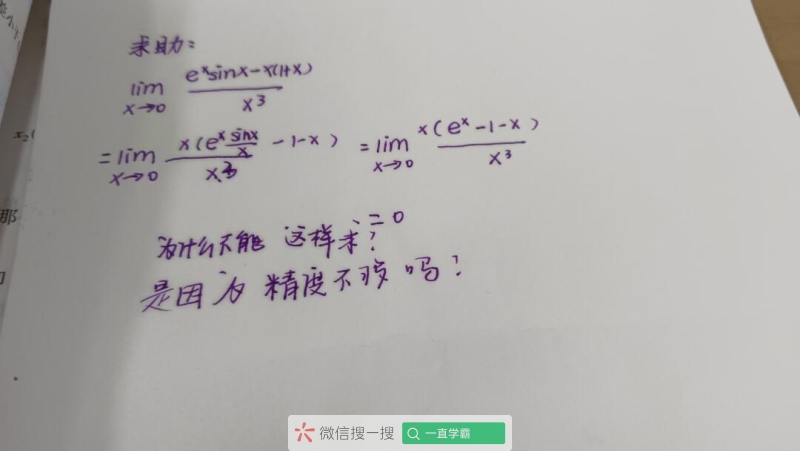 求助:
lim x→0 (e^x sinx - x(1+x)) / x^3
= lim x→0 x(e^x sinx/x - 1 - x) / x^3 = lim x→0 x(e^x - 1 - x) / x^3
= 0
为什么不能 这样求?
是因为 精度不够 吗?
那
微信搜一搜 一直学霸